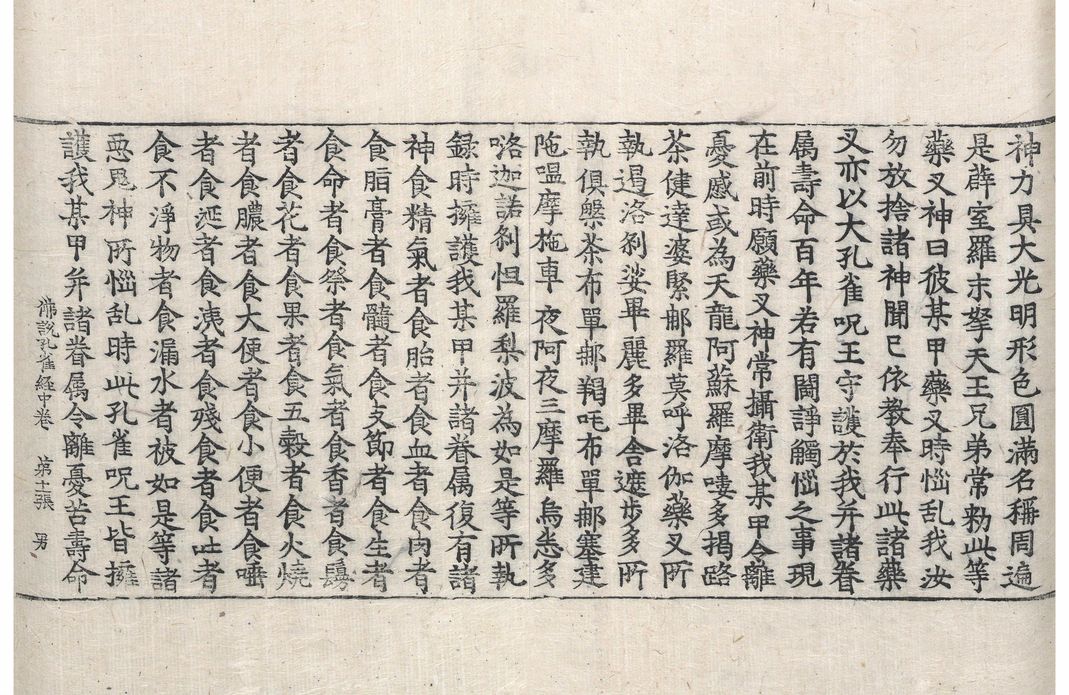 神力具大光明形色圓滿名稱周遍
是薜室羅末拏天王兄弟常勑此等
藥叉神曰彼某甲藥叉時惱乱我汝
勿放捨諸神聞已依教奉行此諸藥
叉亦以大孔雀呪王守護於我并諸眷
属壽命百年若有鬪諍觸惱之事現
在前時願藥叉神常攝衛我某甲令離
憂慼或為天龍阿蘇羅摩嘍多揭路
茶健達婆緊那羅莫呼洛伽藥叉所
執遏洛剎娑畢麗多畢舍遮步多所
執俱槃茶布單那羯吒布單那塞建
陁嗢摩拖車夜阿夜三摩羅烏悉多
咯迦諾剎怛羅梨波為如是等所執
録時擁護我某甲并諸眷属復有諸
神食精氣者食胎者食血者食肉者
食脂膏者食髓者食支節者食生者
食命者食祭者食氣者食香者食鬘
者食花者食果者食五穀者食火燒
者食膿者食大便者食小便者食唾
者食涎者食洟者食殘食者食吐者
食不淨物者食漏水者被如是等諸
惡鬼神所惱乱時此孔雀呪王皆擁
護我某甲并諸眷属令離憂苦壽命
佛說孔雀經中卷 第十張 男